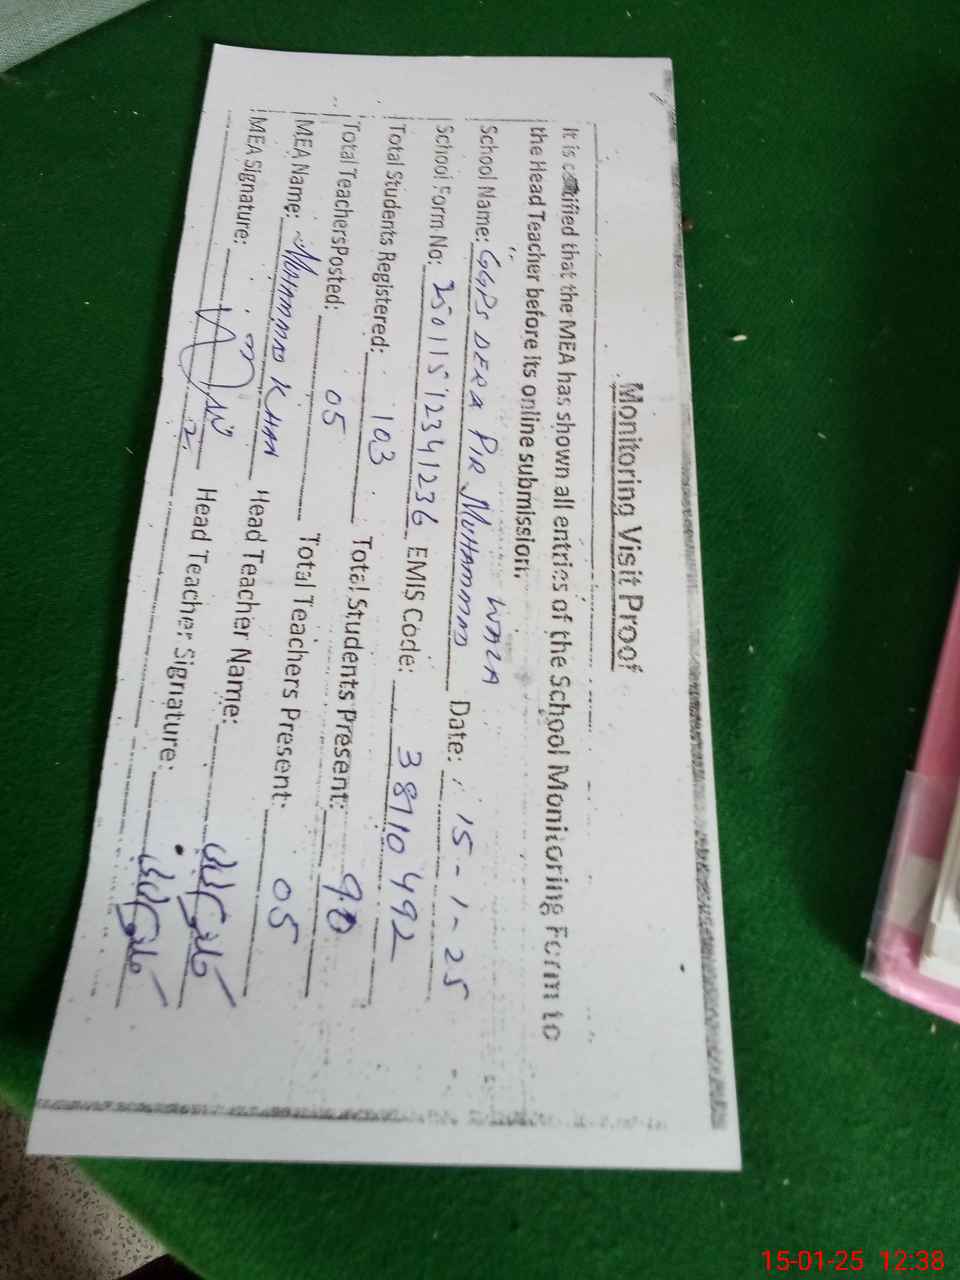 Monitoring Visit Proof
It is certified that the MEA has shown all entries of the School Monitoring Form to
the Head Teacher before its online submission.
School Name: GGPS DERA PIR MUHAMMAD WALA Date: 15-1-25
School Form No: 25011512341236 EMIS Code: 38710492
Total Students Registered: 103 Total Students Present: 90
Total Teachers Posted: 05 Total Teachers Present: 05
MEA Name: MUHAMMAD KHAN Head Teacher Name:
MEA Signature: Head Teacher Signature:
15-01-25 12:38